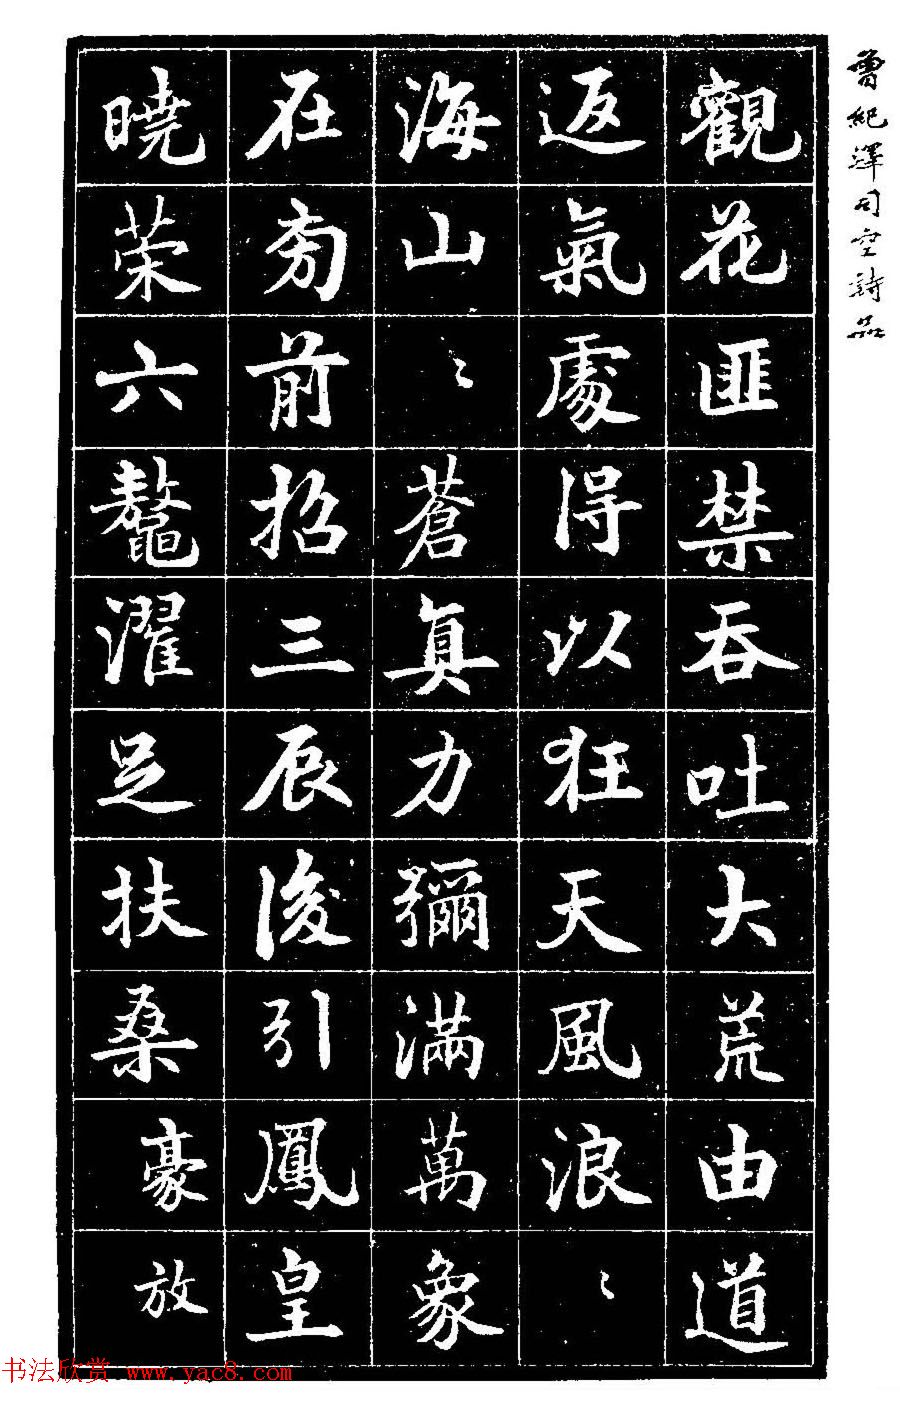 曾紀澤司空詩品
觀花匪禁吞吐大荒由道
返氣處得以狂天風浪〻
海山〻蒼真力彌滿萬象
在旁前招三辰後引鳳皇
曉策六鼇濯足扶桑豪放
书法欣赏 www.yac8.com